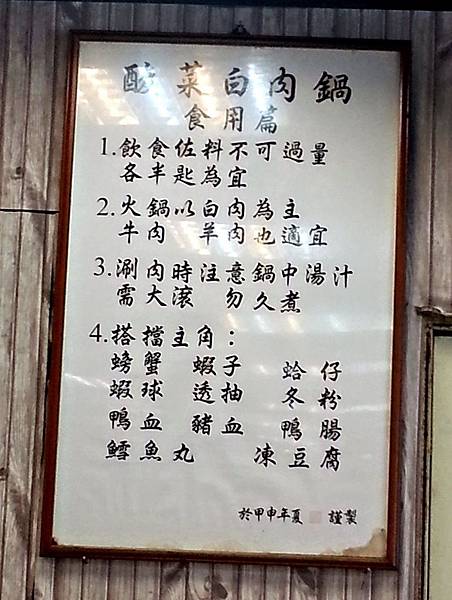 酸菜白肉鍋
食用篇
1.飲食佐料不可過量
各半匙為宜
2.火鍋以白肉為主
牛肉 羊肉也適宜
3.涮肉時注意鍋中湯汁
需大滾 勿久煮
4.搭擋主角：
螃蟹 蝦子 蛤仔
蝦球 透抽 冬粉
鴨血 豬血 鴨腸
鱈魚丸 凍豆腐
於甲申年夏 謹製